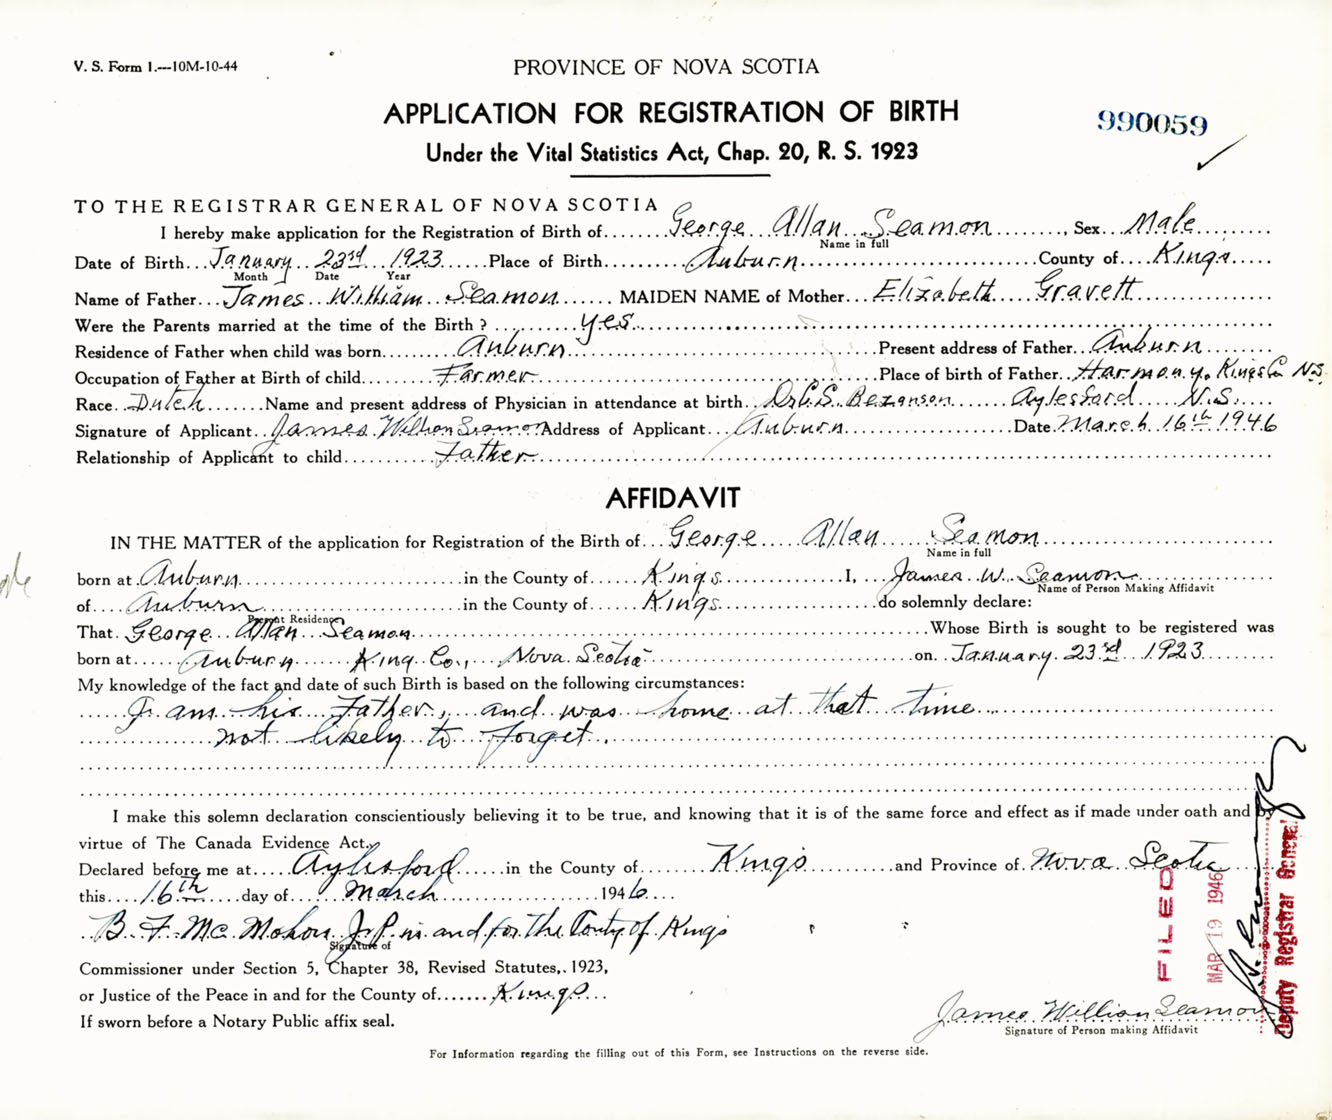 V. S. Form 1.—10M-10-44
PROVINCE OF NOVA SCOTIA
APPLICATION FOR REGISTRATION OF BIRTH
990059
Under the Vital Statistics Act, Chap. 20, R. S. 1923
TO THE REGISTRAR GENERAL OF NOVA SCOTIA
I hereby make application for the Registration of Birth of George Allan Seamon, Sex Male
Name in full
Date of Birth January 23rd 1923 Place of Birth Auburn County of Kings
Month Date Year
Name of Father James William Seamon MAIDEN NAME of Mother Elizabeth Gravett
Were the Parents married at the time of the Birth? yes
Residence of Father when child was born Auburn Present address of Father Auburn
Occupation of Father at Birth of child Farmer Place of birth of Father Harmony, Kings Co N.S.
Race Dutch Name and present address of Physician in attendance at birth Bezanson Aylesford N.S.
Signature of Applicant James William Seamon Address of Applicant Auburn Date March 16th 1946
Relationship of Applicant to child Father
AFFIDAVIT
IN THE MATTER of the application for Registration of the Birth of George Allan Seamon
Name in full
born at Auburn in the County of Kings I, James W. Seamon
Name of Person Making Affidavit
of Auburn in the County of Kings do solemnly declare:
Present Residence
That George Allan Seamon Whose Birth is sought to be registered was
born at Auburn King Co., Nova Scotia on January 23rd 1923
My knowledge of the fact and date of such Birth is based on the following circumstances:
I am his Father, and was home at that time
not likely to forget.
I make this solemn declaration conscientiously believing it to be true, and knowing that it is of the same force and effect as if made under oath and by
virtue of The Canada Evidence Act.
Declared before me at Aylesford in the County of Kings and Province of Nova Scotia
this 16th day of March 1946
B. F. Mc Mahon J.P. in and for the County of Kings
Signature of
Commissioner under Section 5, Chapter 38, Revised Statutes, 1923,
or Justice of the Peace in and for the County of Kings
If sworn before a Notary Public affix seal.
James William Seamon
Signature of Person making Affidavit
FILED
MAR 19 1946
Deputy Registrar General
For Information regarding the filling out of this Form, see Instructions on the reverse side.